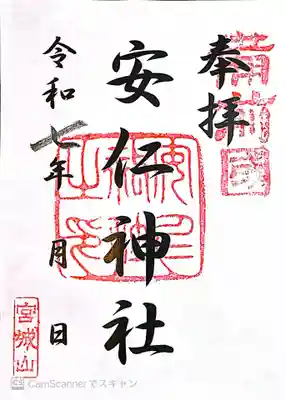 奉拝
備前國
安仁神社
令和七年 月 日
宮城山
CS CamScannerでスキャン